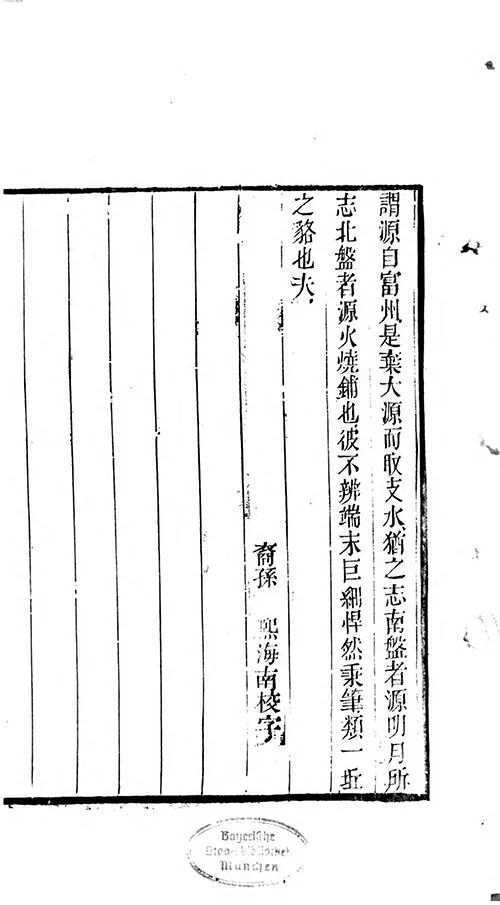 謂源自富州是棄大源而取支水猶之志南盤者源明月所
志北盤者源火燒鋪也彼不辨端末巨細悍然秉筆類一坵
之貉也夫
裔孫 熙海南校字
Bayerische
Staatsbibliothek
München